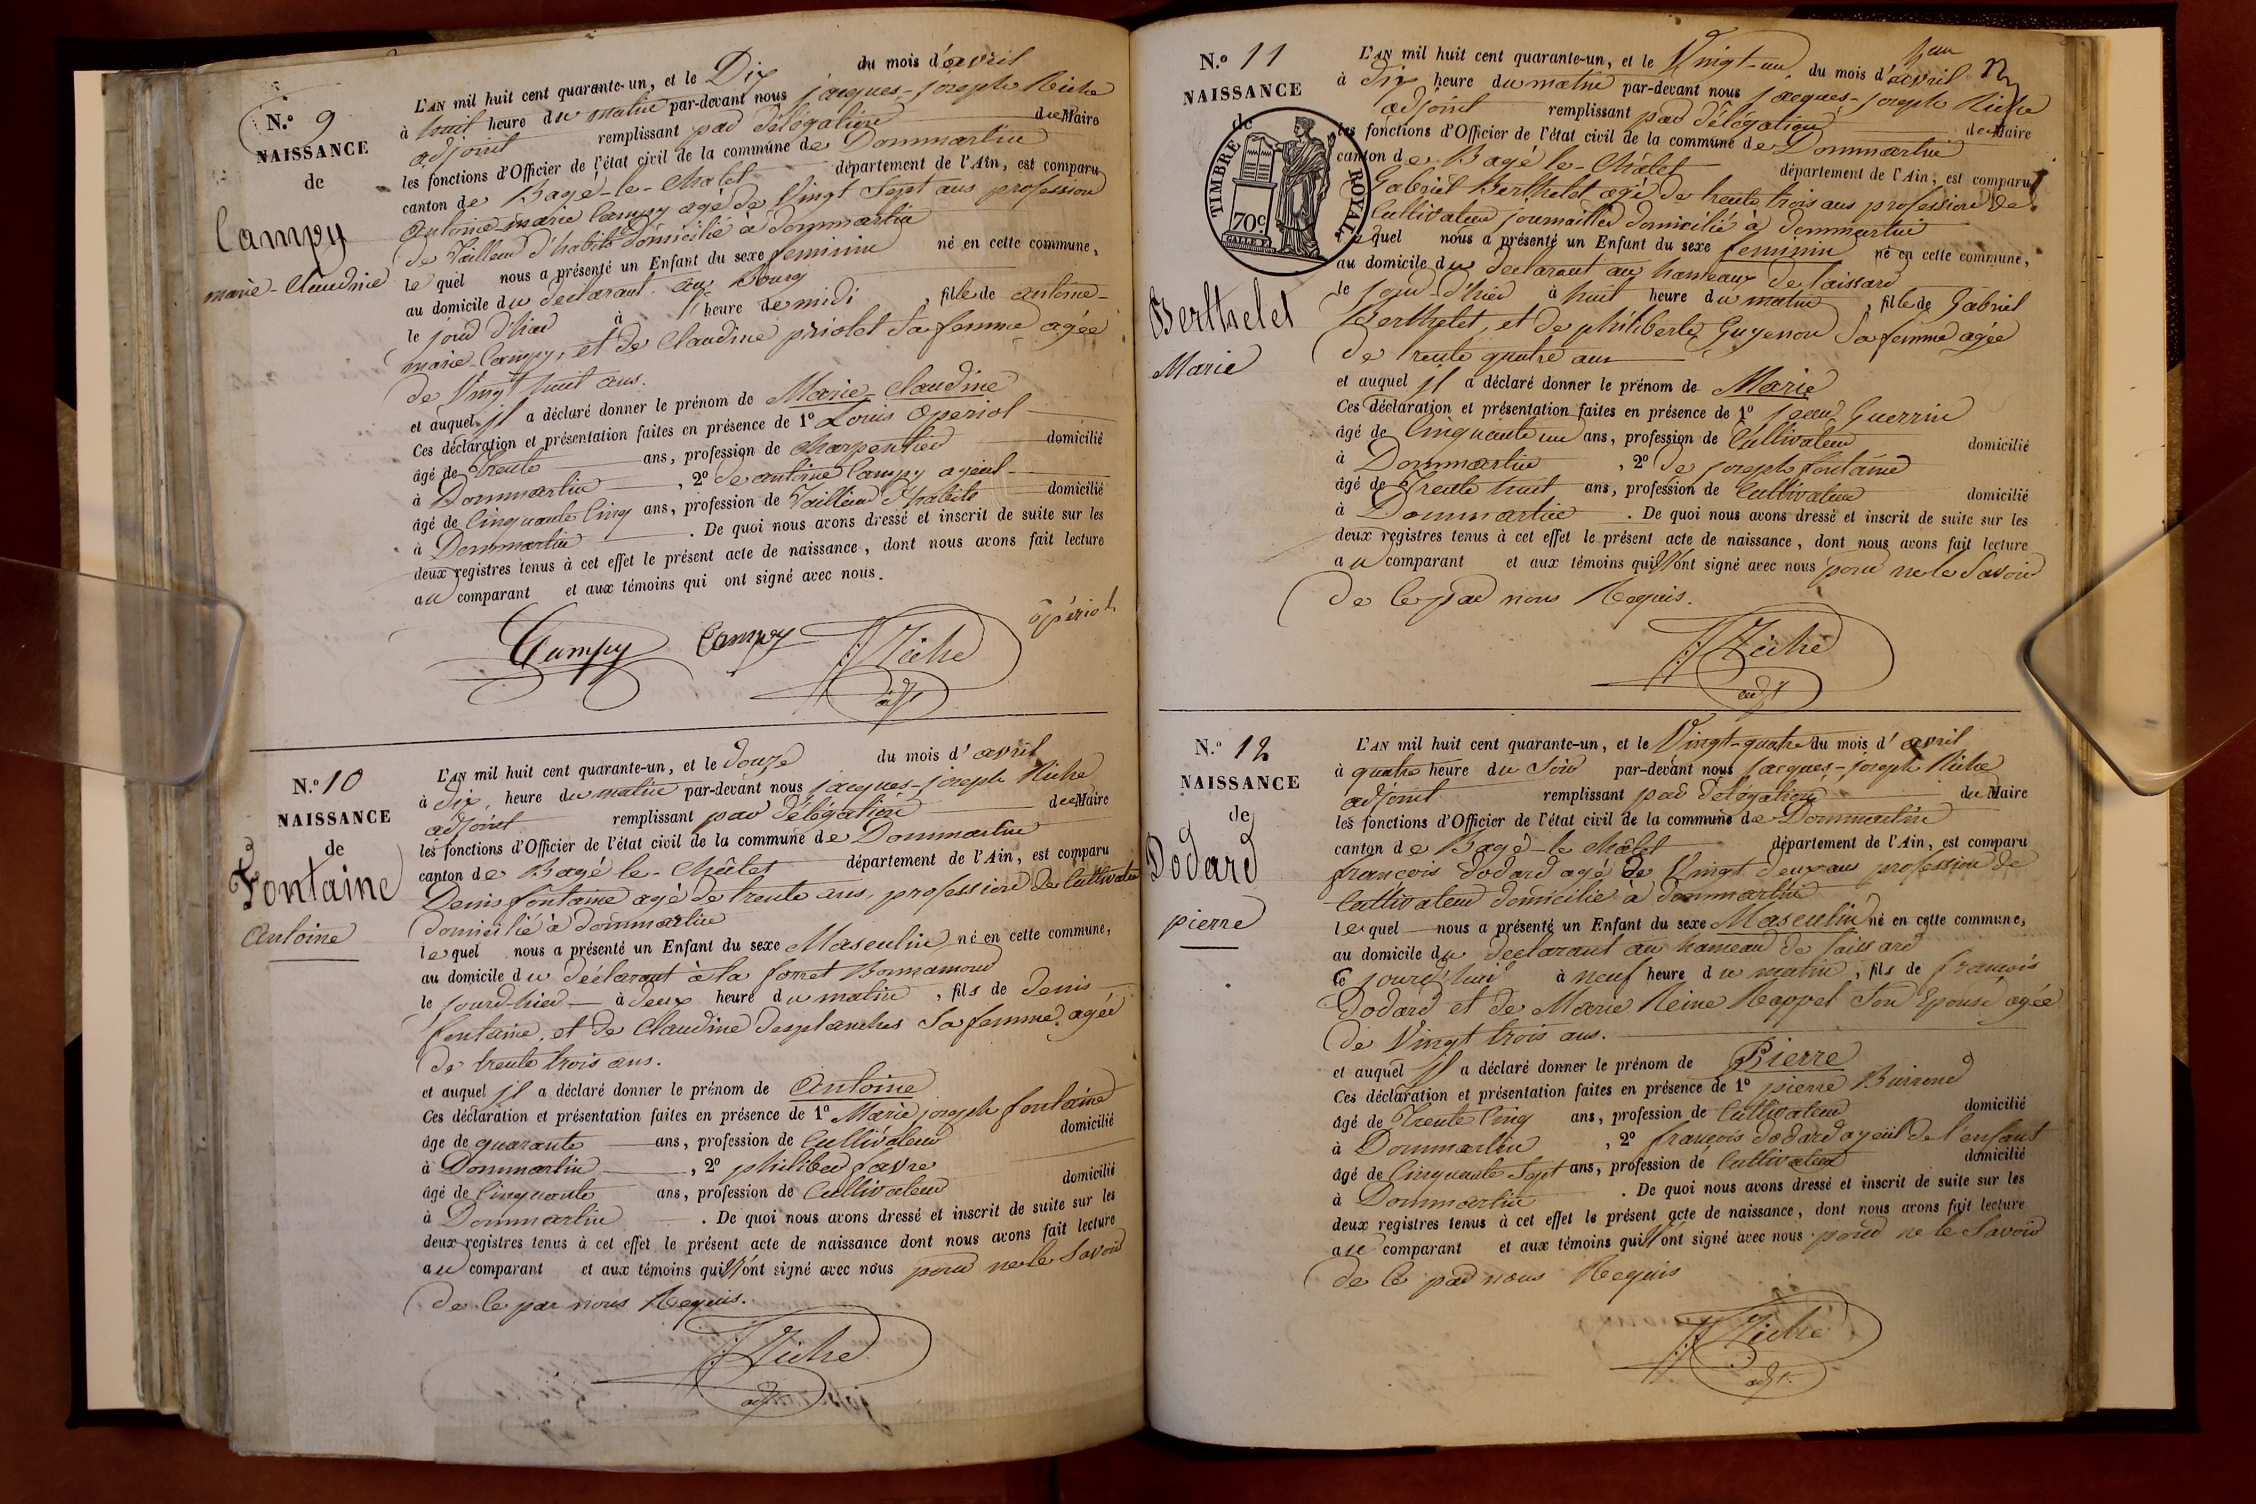 N.º 9
NAISSANCE
de
Campy
marie-Claudine
L'AN mil huit cent quarante-un, et le Dix du mois d'avril
à huit heure du matin par-devant nous jacques-joseph Riche
adjoint remplissant par délégation du Maire
les fonctions d'Officier de l'état civil de la commune de Dommartin
canton de Bagé-le-Chatel département de l'Ain, est comparu
antoine-marie Campy agé de Vingt Sept ans profession
de Tailleur d'habits domicilié à dommartin
le quel nous a présenté un Enfant du sexe feminin né en cette commune,
au domicile du declarant au Bourg
le jour d'hier à heure de midi, fille de antoine-
marie Campy, et de Claudine priolet Sa femme agée
de Vingt huit ans.
et auquel il a déclaré donner le prénom de Marie-Claudine
Ces déclaration et présentation faites en présence de 1º Louis Opériol
âgé de Trente ans, profession de Charpentier domicilié
à Dommartin, 2º de antoine Campy ayeul
âgé de Cinquante Cinq ans, profession de Tailleur d'habits domicilié
à Dommartin. De quoi nous avons dressé et inscrit de suite sur les
deux registres tenus à cet effet le présent acte de naissance, dont nous avons fait lecture
au comparant et aux témoins qui ont signé avec nous.
opériol
Campy Campy Riche
adjt
N.º 10
NAISSANCE
de
Fontaine
Antoine
L'AN mil huit cent quarante-un, et le douze du mois d'avril
à dix heure du matin par-devant nous jacques-joseph Riche
adjoint remplissant par délégation du Maire
les fonctions d'Officier de l'état civil de la commune de Dommartin
canton de Bagé-le-Châtel département de l'Ain, est comparu
Denis fontaine agé de trente ans, profession de Cultivateur
domicilié à dommartin
le quel nous a présenté un Enfant du sexe Masculin né en cette commune,
au domicile du déclarant à la forret Bonnamour
le jourd-hier à deux heure du matin, fils de denis
fontaine, et de Claudine desplanches Sa femme, agée
de trente trois ans.
et auquel il a déclaré donner le prénom de Antoine
Ces déclaration et présentation faites en présence de 1º Marie joseph fontaine
âgé de quarante ans, profession de Cultivateur domicilié
à Dommartin, 2º philiber favre
âgé de Cinquante ans, profession de Cultivateur domicilié
à Dommartin. De quoi nous avons dressé et inscrit de suite sur les
deux registres tenus à cet effet le présent acte de naissance dont nous avons fait lecture
au comparant et aux témoins qui N'ont signé avec nous pour ne le Savoir
de Ce par nous Requis.
Riche
adjt
N.º 11
NAISSANCE
de
TIMBRE ROYAL
70 c.
Berthelet
Marie
L'AN mil huit cent quarante-un, et le Vingt-un du mois d'avril
à dix heure du matin par-devant nous jacques-joseph Riche
adjoint remplissant par délégation du Maire
les fonctions d'Officier de l'état civil de la commune de Dommartin
canton de Bagé-le-Châtel département de l'Ain, est comparu
Gabriel Berthelet agé de trente trois ans profession de
Cultivateur journaillier domicilié à dommartin
le quel nous a présenté un Enfant du sexe feminin né en cette commune,
au domicile du declarant au hameaux de laissard
le jour-d'hier à huit heure du matin, fille de Gabriel
Berthelet, et de philiberte Guyennon Sa femme agée
de trente quatre ans
et auquel il a déclaré donner le prénom de Marie
Ces déclaration et présentation faites en présence de 1º jean Guerrin
âgé de Cinquante un ans, profession de Cultivateur domicilié
à Dommartin, 2º de joseph fontaine
âgé de Trente huit ans, profession de Cultivateur domicilié
à Dommartin. De quoi nous avons dressé et inscrit de suite sur les
deux registres tenus à cet effet le présent acte de naissance, dont nous avons fait lecture
au comparant et aux témoins qui N'ont signé avec nous pour ne le Savoir
de Ce par nous Requis.
Riche
adjt
N.º 12
NAISSANCE
de
Dodard
pierre
L'AN mil huit cent quarante-un, et le Vingt-quatre du mois d'avril
à quatre heure du Soir par-devant nous jacques-joseph Riche
adjoint remplissant par délégation du Maire
les fonctions d'Officier de l'état civil de la commune de Dommartin
canton de Bagé-le-Châtel département de l'Ain, est comparu
françois dodard agé de Vingt deux ans profession de
Cultivateur domicilié à dommartin
le quel nous a présenté un Enfant du sexe Masculin né en cette commune,
au domicile du declarant au hameau de laissard
le jourd'hui à neuf heure du matin, fils de françois
Dodard et de Marie Reine Rappet Son Epouse agée
de Vingt trois ans.
et auquel il a déclaré donner le prénom de Pierre
Ces déclaration et présentation faites en présence de 1º pierre
âgé de Trente Cinq ans, profession de Cultivateur domicilié
à Dommartin, 2º françois dodard ayeul de l'enfant
âgé de Cinquante Sept ans, profession de Cultivateur domicilié
à Dommartin. De quoi nous avons dressé et inscrit de suite sur les
deux registres tenus à cet effet le présent acte de naissance, dont nous avons fait lecture
au comparant et aux témoins qui N'ont signé avec nous pour ne le Savoir
de Ce par nous Requis
Riche
adjt.